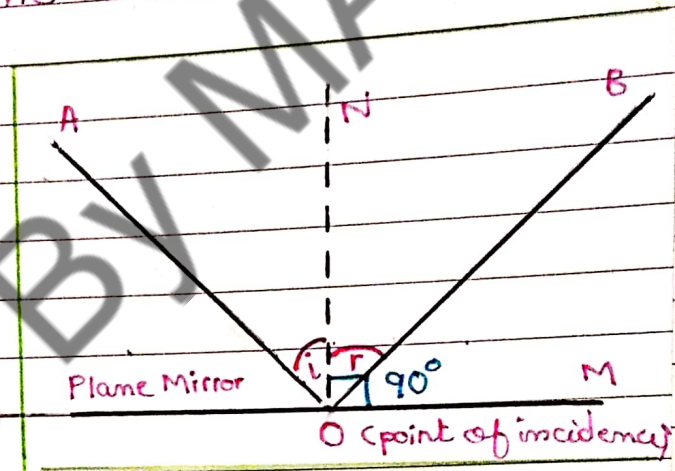 By MA
A
N
B
i
r
90°
Plane Mirror
M
O (point of incidency)